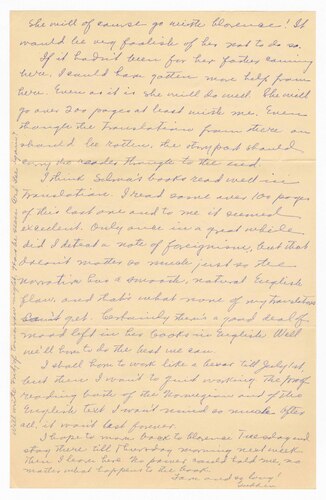 She will of course go with Clorense! It
would be very foolish of her not to do so.
If it hadn't been for her father coming
here, I could have gotten more help from
her. Even as it is she will do well. She will
go over 200 pages at least with me. Even
though the translations from there on
should be rotten, the story should
carry the reader through to the end.
I think Selma's books read well in
translation. I read some over 100 pages
of this last one and to me it seemed
excellent. Only once in a great while
did I detect a note of foreignism, but that
doesn't matter so much just so the
narration has a smooth, natural English
flow, and that's what none of my translators
get. Certainly there's a good deal of
mood left in her books in English. Well
we'll have to do the best we can.
I shall have to work like a beaver till July 1st,
but then I want to quit working. The proof
reading both of the Norwegian and of the
English text I won't mind so much. After
all, it won't last forever.
I hope to move back to Clorense Tuesday and
stay there till Thursday morning next week.
Then I leave here. No power could hold me, no
matter what happens to the book.
So long!